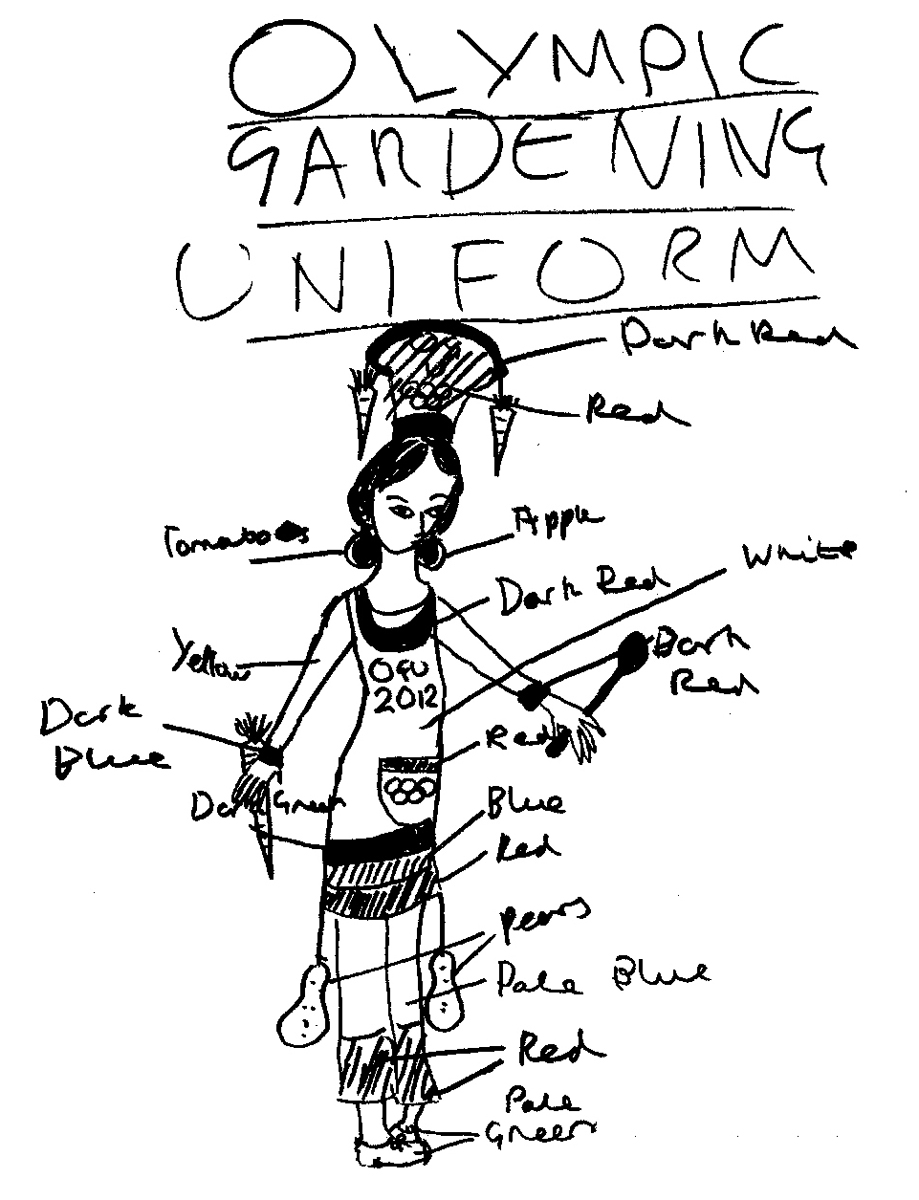 OLYMPIC
GARDENING
UNIFORM
Dark Red
Red
Tomatoes
Apple
White
Dark Red
Yellow
Dark
Red
OGU
2012
Dark
Blue
Red
Dark Green
Blue
Red
Pears
Pale Blue
Red
Pale
Green